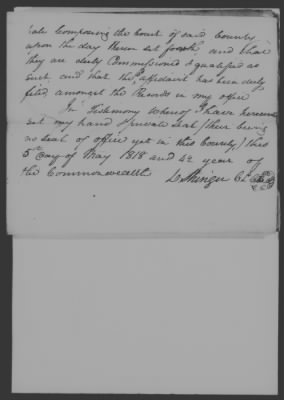 composing the court of said County
upon the day therein set forth and that
they are duly Commissioned & qualified as
such and that the affidavit has been duly
filed amongst the Records in my office
In Testimony whereof I have hereunto
set my hand & private seal (there being
no seal of office yet in this County) this
5th day of May 1818 and 42 year of
the Commonwealth